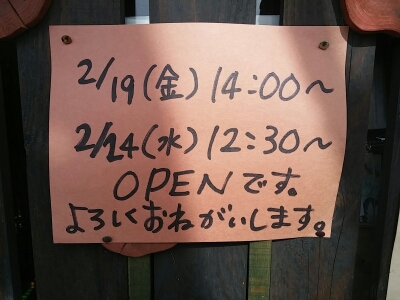 2/19(金)14:00〜
2/24(水)12:30〜
OPENです。
よろしくおねがいします。